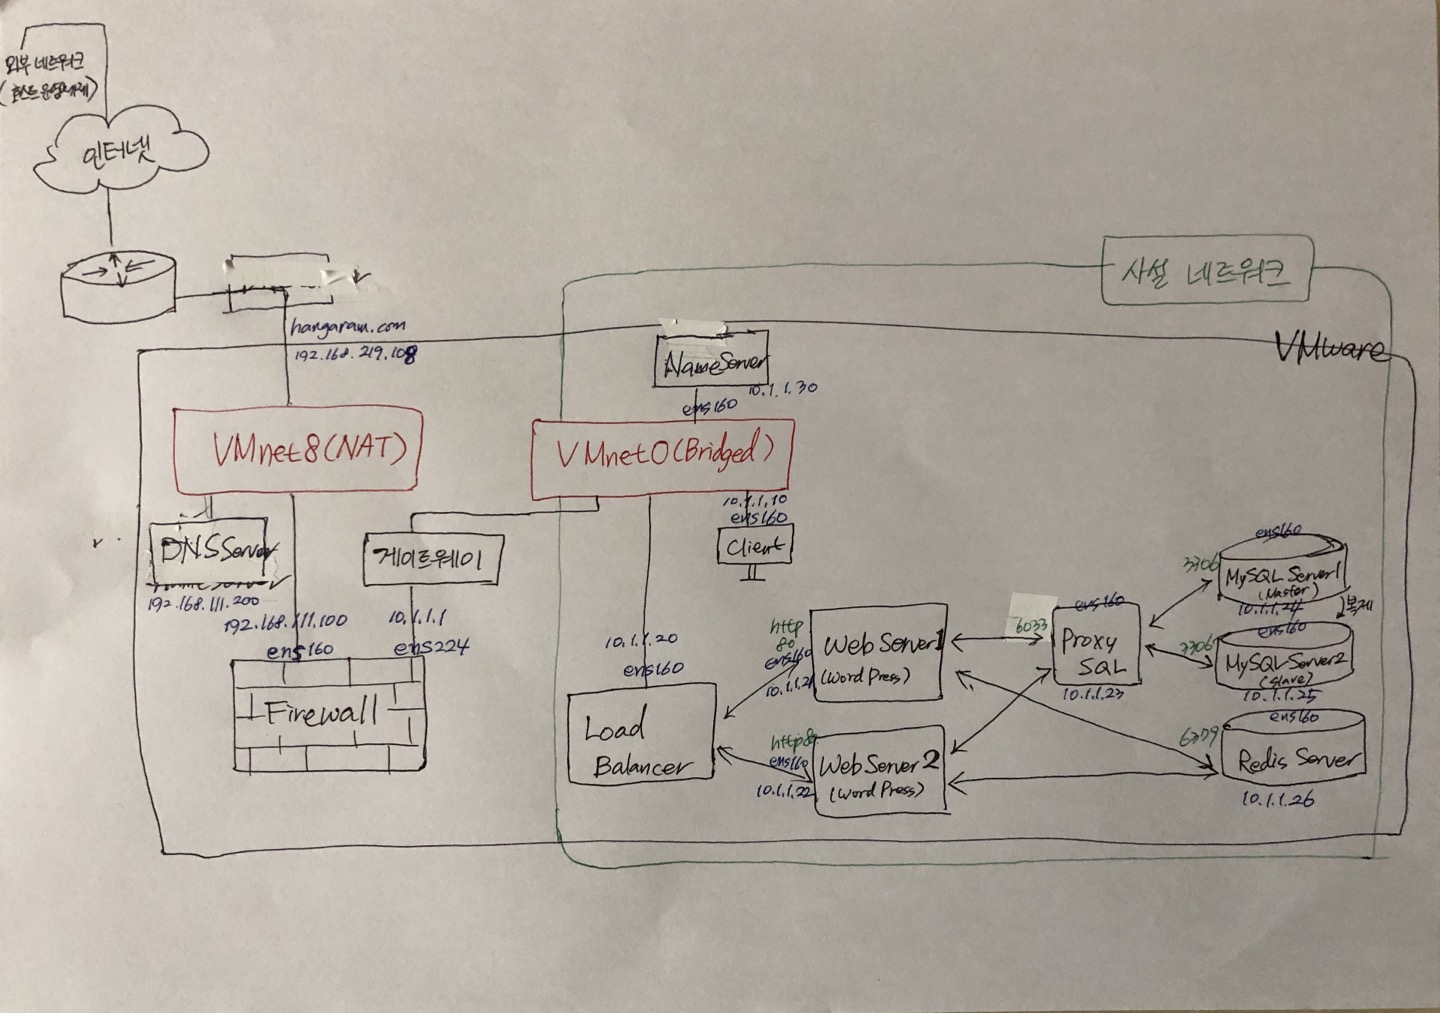 외부 네트워크
(호스트 운영체제)
인터넷
사설 네트워크
hangaram.com
192.168.219.108
VMware
NameServer
10.1.1.30
ens160
VMnet8(NAT)
VMnet0(Bridged)
10.1.1.10
ens160
Client
DNSServer
192.168.111.200
게이트웨이
192.168.111.100
ens160
10.1.1.1
ens224
Firewall
10.1.1.20
ens160
Load
Balancer
http
80
ens160
10.1.1.21
Web Server1
(Word Press)
http80
ens160
10.1.1.22
Web Server2
(Word Press)
6033
ens160
Proxy
SQL
10.1.1.23
ens160
3306
MySQL Server1
(Master)
10.1.1.24
복제
ens160
3306
MySQL Server2
(Slave)
10.1.1.25
ens160
6379
Redis Server
10.1.1.26